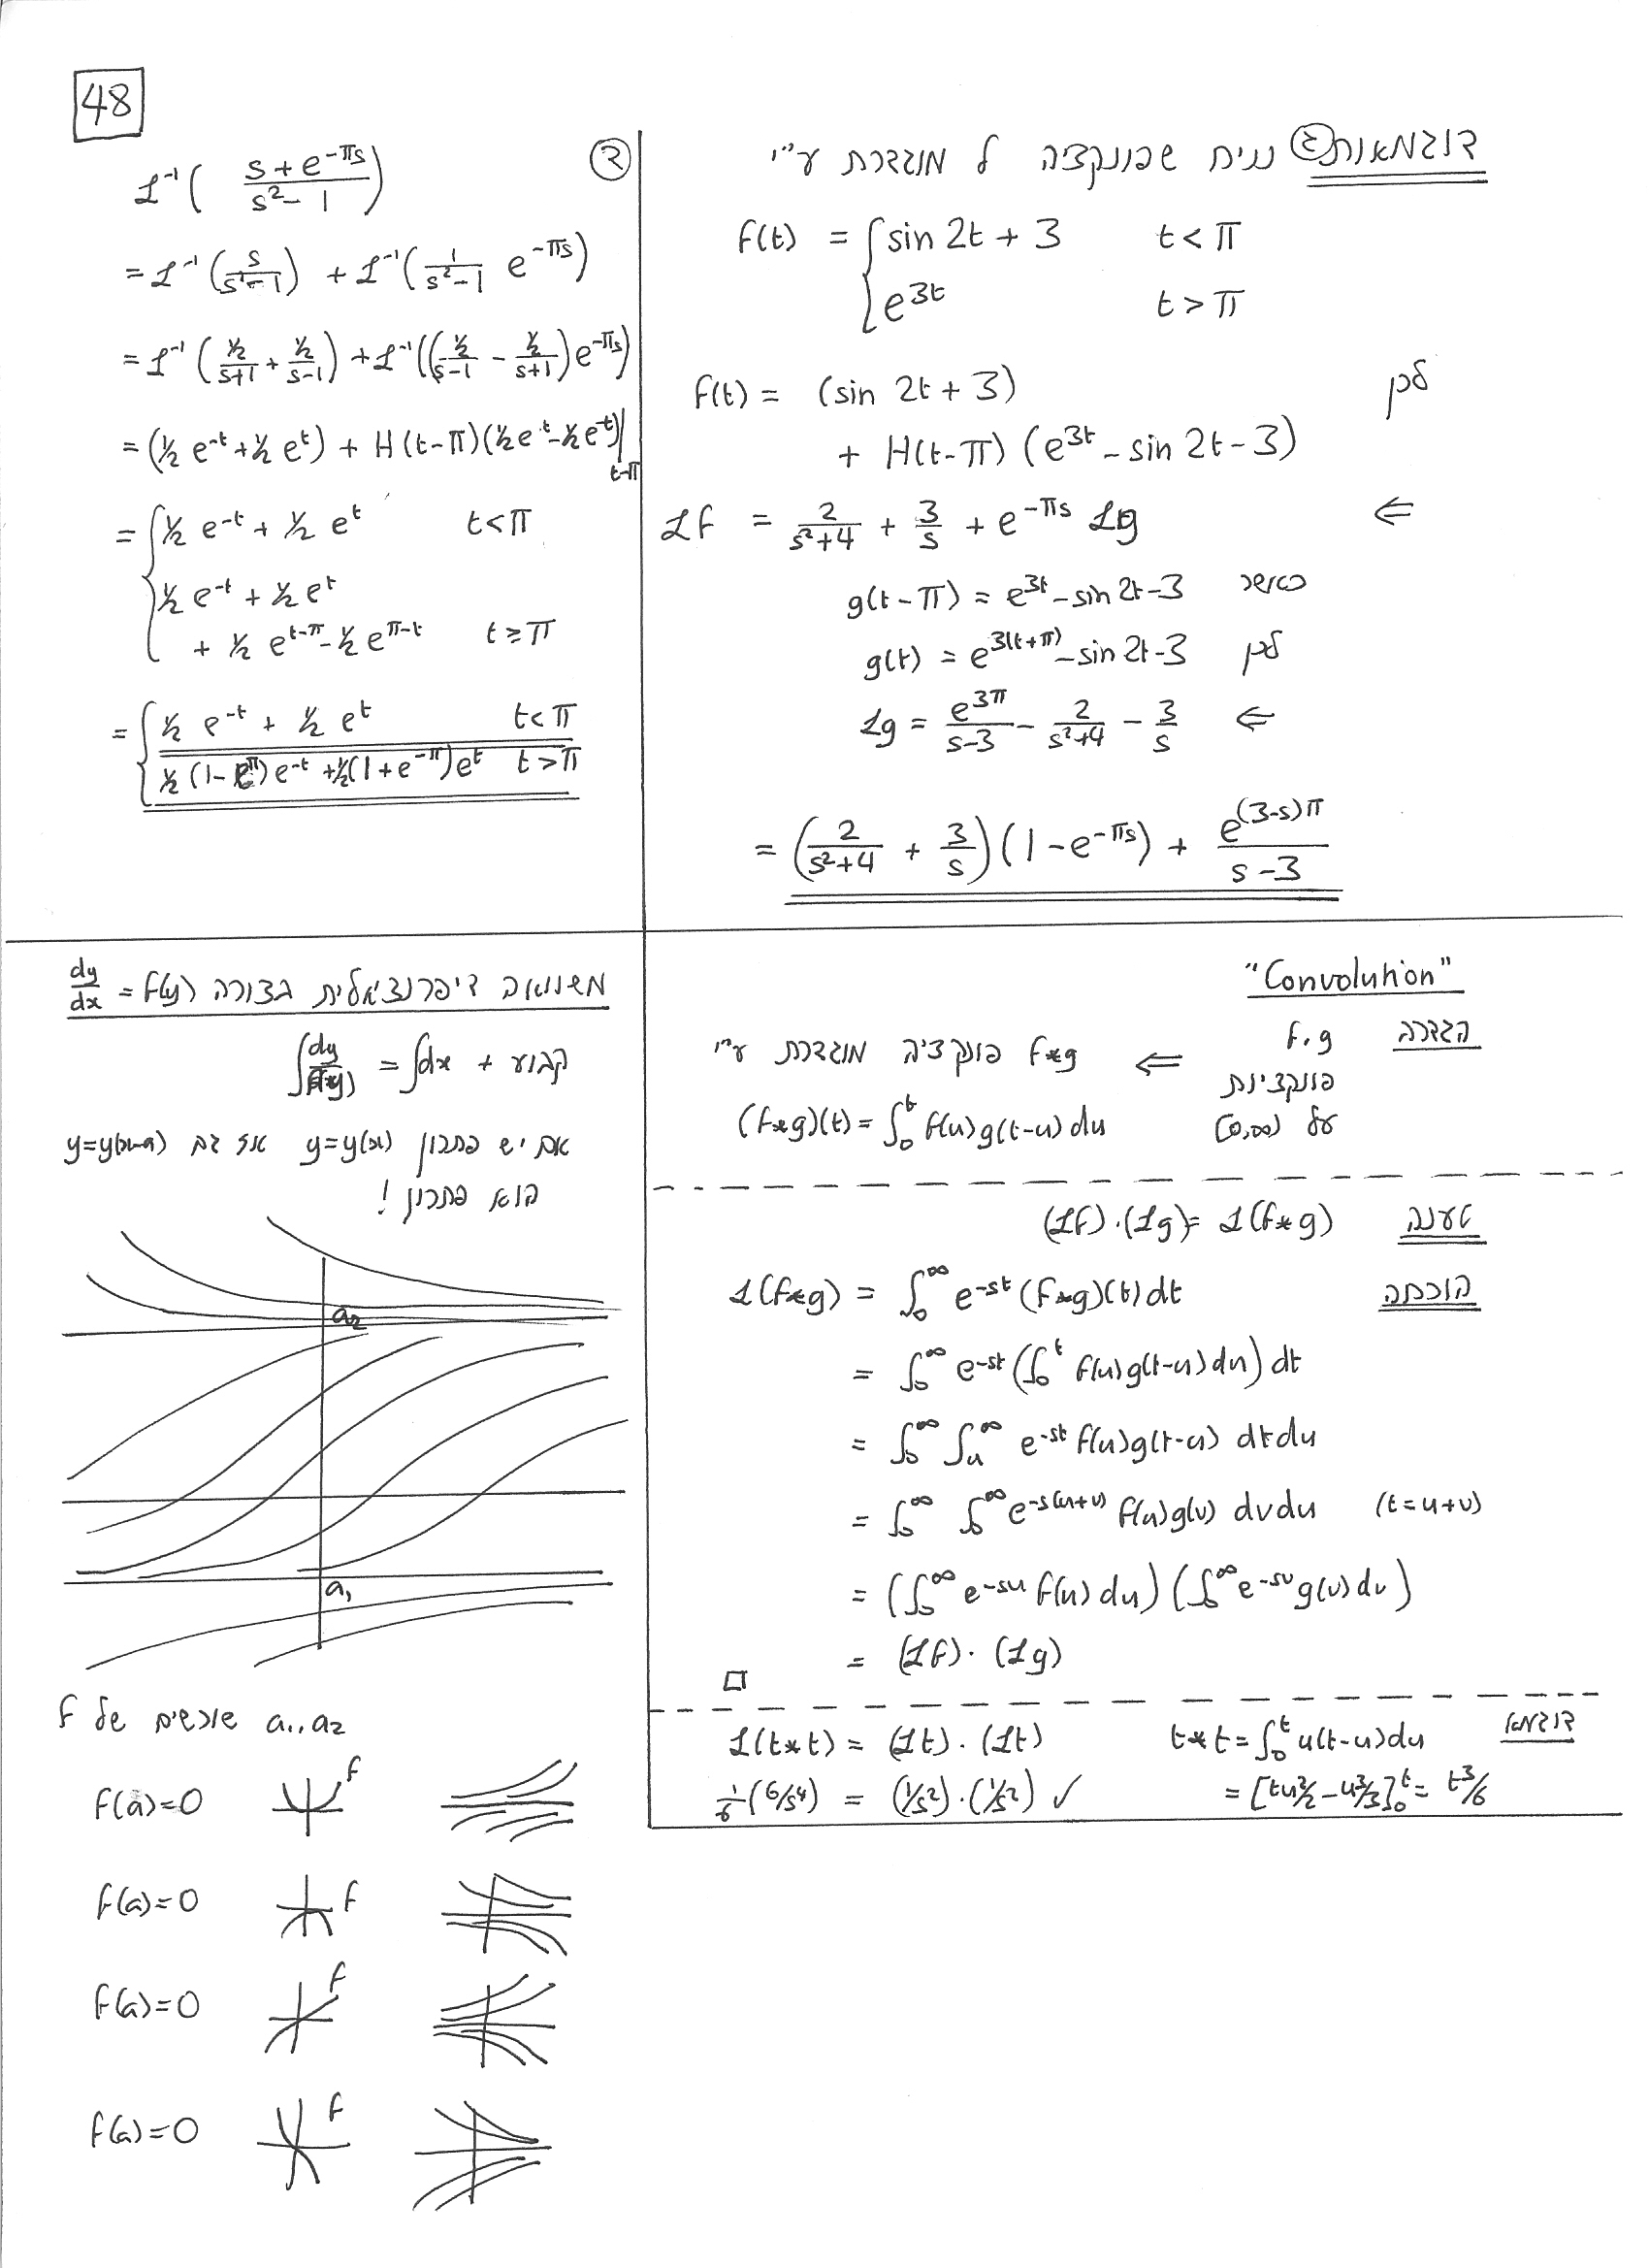 48
דוגמאות ① נניח שפונקציה f מוגדרת ע"י
f(t) = { sin 2t + 3    t < π
e^{3t}    t > π
לכן    f(t) = (sin 2t + 3)
+ H(t-π) (e^{3t} - sin 2t - 3)
⇐    ℒf = 2/(s²+4) + 3/s + e^{-πs} ℒg
כאשר    g(t-π) = e^{3t} - sin 2t - 3
לכן    g(t) = e^{3(t+π)} - sin 2t - 3
⇐    ℒg = e^{3π}/(s-3) - 2/(s²+4) - 3/s
= (2/(s²+4) + 3/s)(1 - e^{-πs}) + e^{(3-s)π}/(s-3)
②    ℒ⁻¹( (s + e^{-πs})/(s² - 1) )
= ℒ⁻¹(s/(s²-1)) + ℒ⁻¹(1/(s²-1) e^{-πs})
= ℒ⁻¹(½/(s+1) + ½/(s-1)) + ℒ⁻¹((½/(s-1) - ½/(s+1)) e^{-πs})
= (½ e^{-t} + ½ e^t) + H(t-π)(½ e^t - ½ e^{-t})|_{t-π}
= { ½ e^{-t} + ½ e^t    t < π
½ e^{-t} + ½ e^t
+ ½ e^{t-π} - ½ e^{π-t}    t ≥ π
= { ½ e^{-t} + ½ e^t    t < π
½ (1 - e^π) e^{-t} + ½ (1 + e^{-π}) e^t    t > π
"Convolution"
הגדרה    f, g    ⇐    f*g פונקציה מוגדרת ע"י
פונקציות
על (0,∞)    (f*g)(t) = ∫₀^t f(u)g(t-u) du
טענה    (ℒf)·(ℒg) = ℒ(f*g)
הוכחה    ℒ(f*g) = ∫₀^∞ e^{-st} (f*g)(t) dt
= ∫₀^∞ e^{-st} (∫₀^t f(u)g(t-u) du) dt
= ∫₀^∞ ∫_u^∞ e^{-st} f(u)g(t-u) dt du
= ∫₀^∞ ∫₀^∞ e^{-s(u+v)} f(u)g(v) dv du    (t = u+v)
= (∫₀^∞ e^{-su} f(u) du) (∫₀^∞ e^{-sv} g(v) dv)
= (ℒf)·(ℒg)
□
דוגמא    t*t = ∫₀^t u(t-u) du
= [tu²/2 - u³/3]₀^t = t³/6
ℒ(t*t) = (ℒt)·(ℒt)
1/6 (6/s⁴) = (1/s²)·(1/s²) ✓
משוואה דיפרנציאלית בצורה dy/dx = f(y)
∫ dy/f(y) = ∫dx + קבוע
אם יש פתרון y=y(x) אז גם y=y(x-a)
הוא פתרון !
a₂
a₁
a₁, a₂ שורשים של f
f(a)=0    f
f(a)=0    f
f(a)=0    f
f(a)=0    f